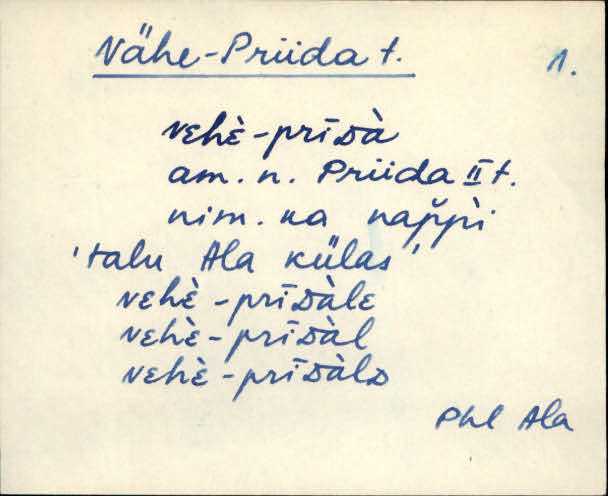 Nähe-Priida t.
1.
vɛhè-prīᴅà
am. n. Priida II t.
nim. ka nap̆p̀i
'talu Ala külas'
vɛhè-prīᴅàlɛ
vɛhè-prīᴅàl
vɛhè-prīᴅàlᴅ
Phl Ala